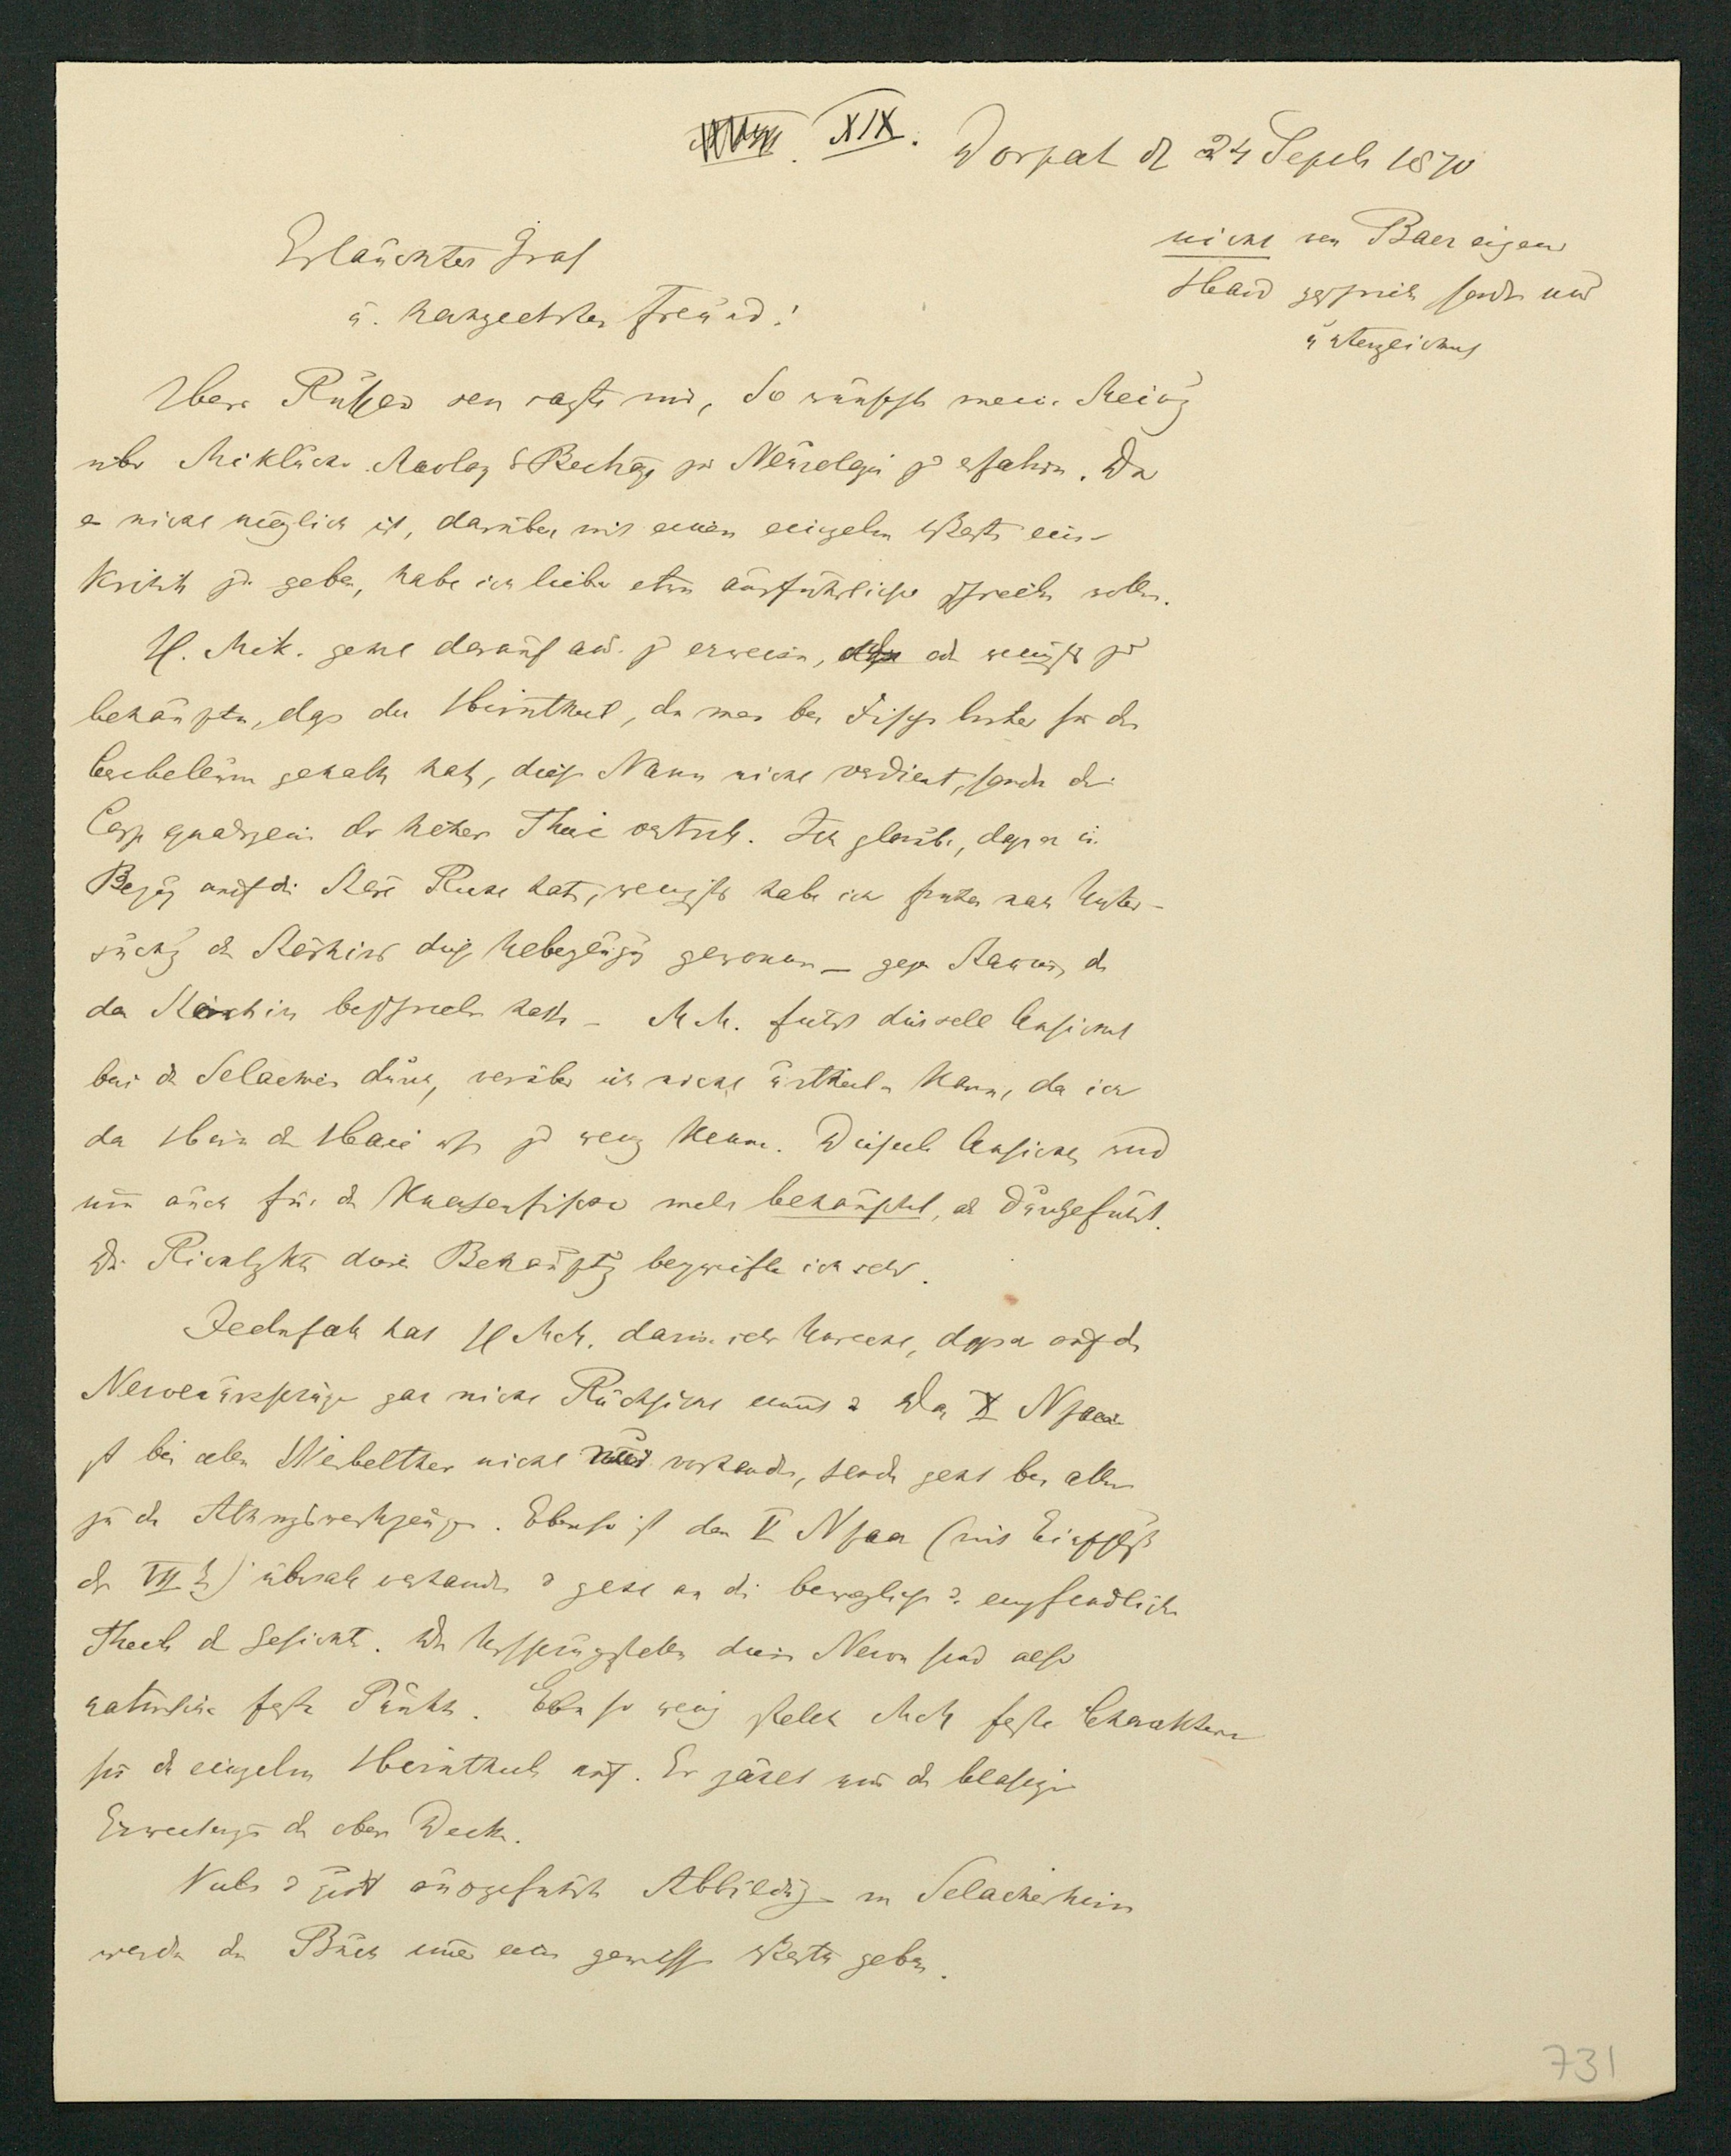 XIX.
Dorpat d 24 Septb 1870
nicht von Baer eigene
Hand geschrieb sondr nur
unterzeichnet
Erlauchter Graf
u. hochgeehrter Freund!
Herr Russow sagte mir, Sie wünscht meine Meing
über Miklucho Maclay's Beitrge zur Neurologie zu erfahrn. Da
es nicht möglich ist, darüber mit einem einzelnen Worte eine
Kritik zu geben, habe ich lieber etwas ausführlicher schreiben wollen.
H. Mik. geht darauf aus zu erweisn, od wenigst zu
behaupten, dass der Hirntheil, den man bei Fischen bisher für das
Cerebellum gehalt hat, diesen Namen nicht verdient, sondrn die
Corp quadrgemi der höhern Thiere vertrete. Ich glaube, dass er in
Bezug auf die Störe Recht hat, wenigstns habe ich früher nach Unter-
suchg des Störhirns diese Uebezeugug gewonnen — gegen Stannius, der
das Störhirn beschrieben hatte — M M. führt dieselbe Ansicht
bei den Selachiern durch, worüber ich nicht urtheiln kann, da ich
das Hirn der Haie etc zu wenig kenne. Dieselbe Ansicht wird
nun auch für die Knochenfische mehr behauptet, als durchgeführt.
Die Richtigkt dieser Behauptg bezweifle ich sehr.
Jedenfalls hat H MM. darin sehr Unrecht, dass er auf die
Nervenursprünge gar nicht Rücksicht nimmt. Das X Npaar
ist bei allen Wirbelthier nicht nur vorhanden, sondrn geht bei allen
zu den Athmngswerkzeugen. Ebenso ist das V Npaar (mit Einschluss
des VII) überall vorhanden & geht an die beweglichen & empfindlichen
Theile des Gesichts. Die Ursprungsstellen dieser Nerven sind also
natürliche feste Punkte. Eben so wenig stellt MM feste Charaktere
für die einzelnen Hirntheile auf. Er zählt nur die blasigen
Erweiterungen der obern Decke.
Viele & gut ausgeführte Abbildung von Selachierhirn
werden dem Buch immer einen gewissen Werth geben.
731